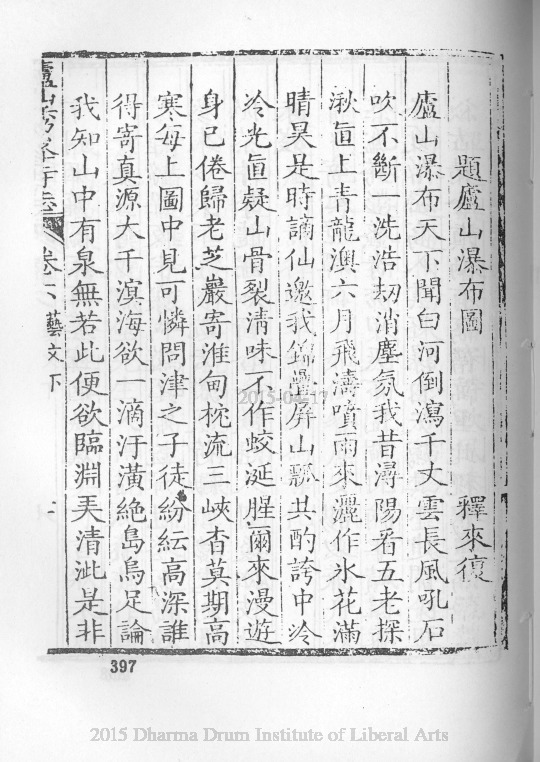 題廬山瀑布圖 釋來復
廬山瀑布天下聞白河倒瀉千丈雲長風吼石
吹不斷一洗浩劫消塵氛我昔潯陽看五老探
湫直上青龍澳六月飛濤噴雨來灑作氷花滿
晴昊是時謫仙邀我錦疊屏山瓢共酌誇中泠
泠光直疑山骨裂清味不作蛟涎腥爾來漫遊
身已倦歸老芝巖寄淮甸枕流三峽杳莫期高
寒每上圖中見可憐問津之子徒紛紜高深誰
得寄真源大千溟海欲一滴汙潢絶島烏足論
我知山中有泉無若此便欲臨淵弄清泚是非
廬山秀峯寺志 卷六 藝文下 二
397
2015-04-17
2015 Dharma Drum Institute of Liberal Arts